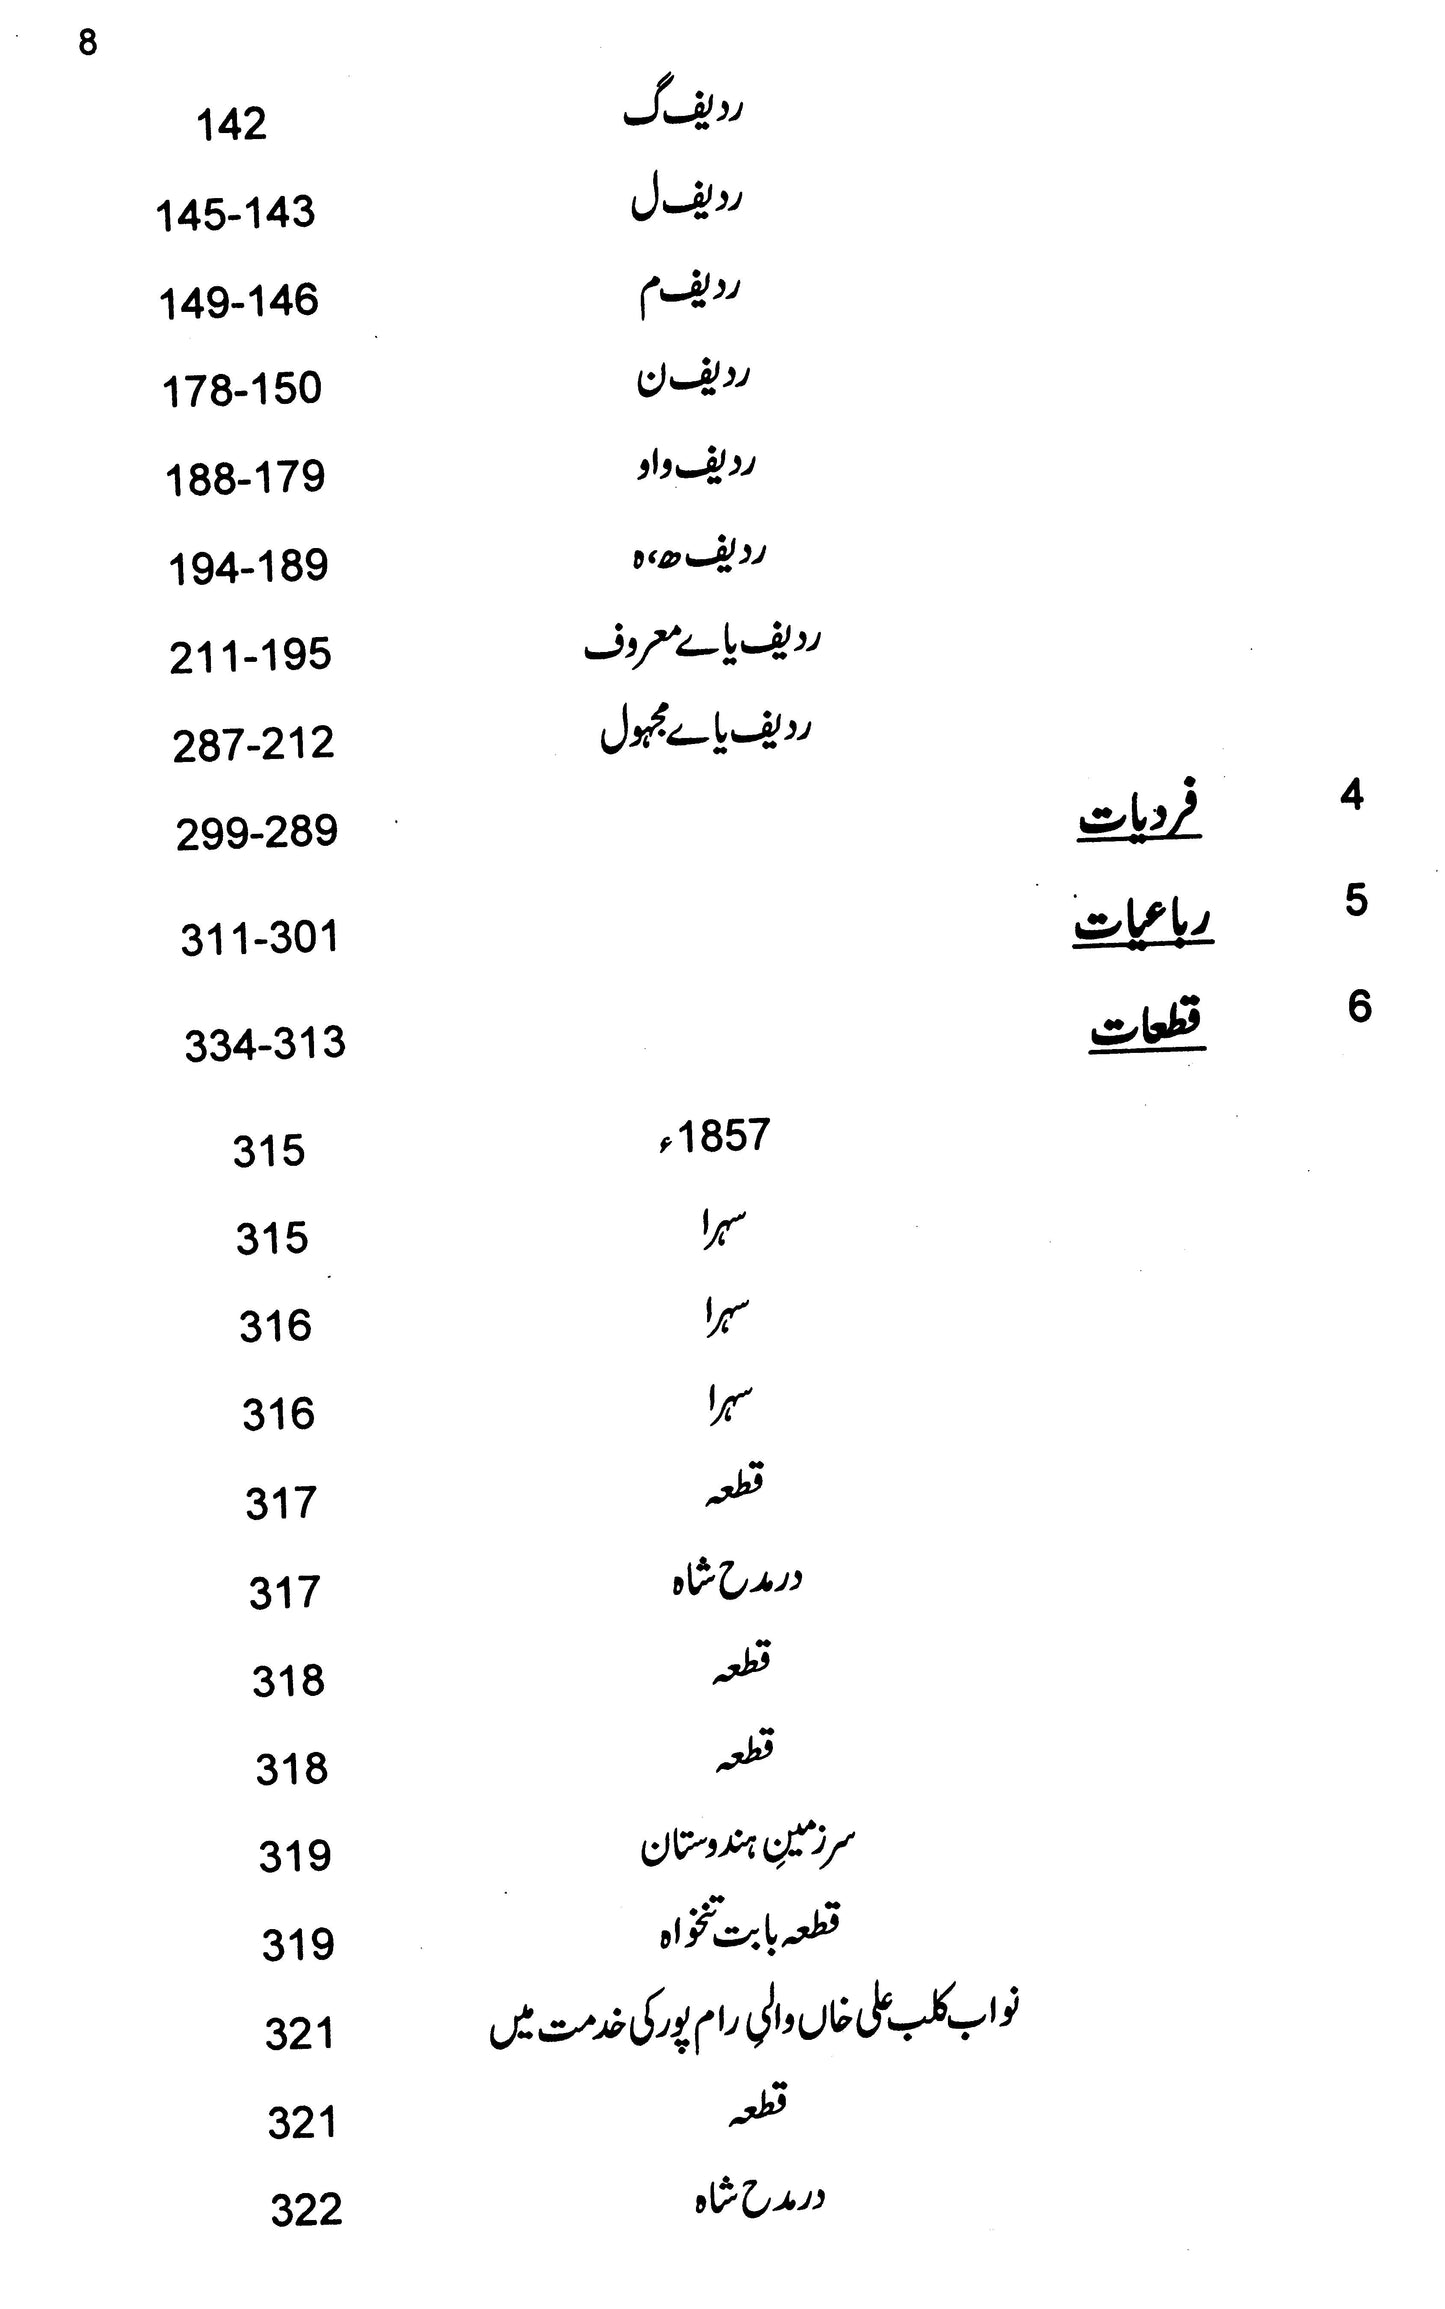 8
ردیف گ 142
ردیف ل 145-143
ردیف م 149-146
ردیف ن 178-150
ردیف واو 188-179
ردیف ھ،ہ 194-189
ردیف یاے معروف 211-195
ردیف یاے مجہول 287-212
4 فردیات 299-289
5 رباعیات 311-301
6 قطعات 334-313
1857ء 315
سہرا 315
سہرا 316
سہرا 316
قطعہ 317
در مدح شاہ 317
قطعہ 318
قطعہ 318
سرزمینِ ہندوستان 319
قطعہ بابت تنخواہ 319
نواب کلب علی خاں والیِ رام پور کی خدمت میں 321
قطعہ 321
در مدح شاہ 322